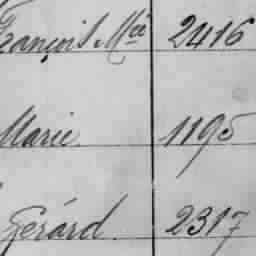 François Mée 2416
Marie 1195
Gérard. 2317